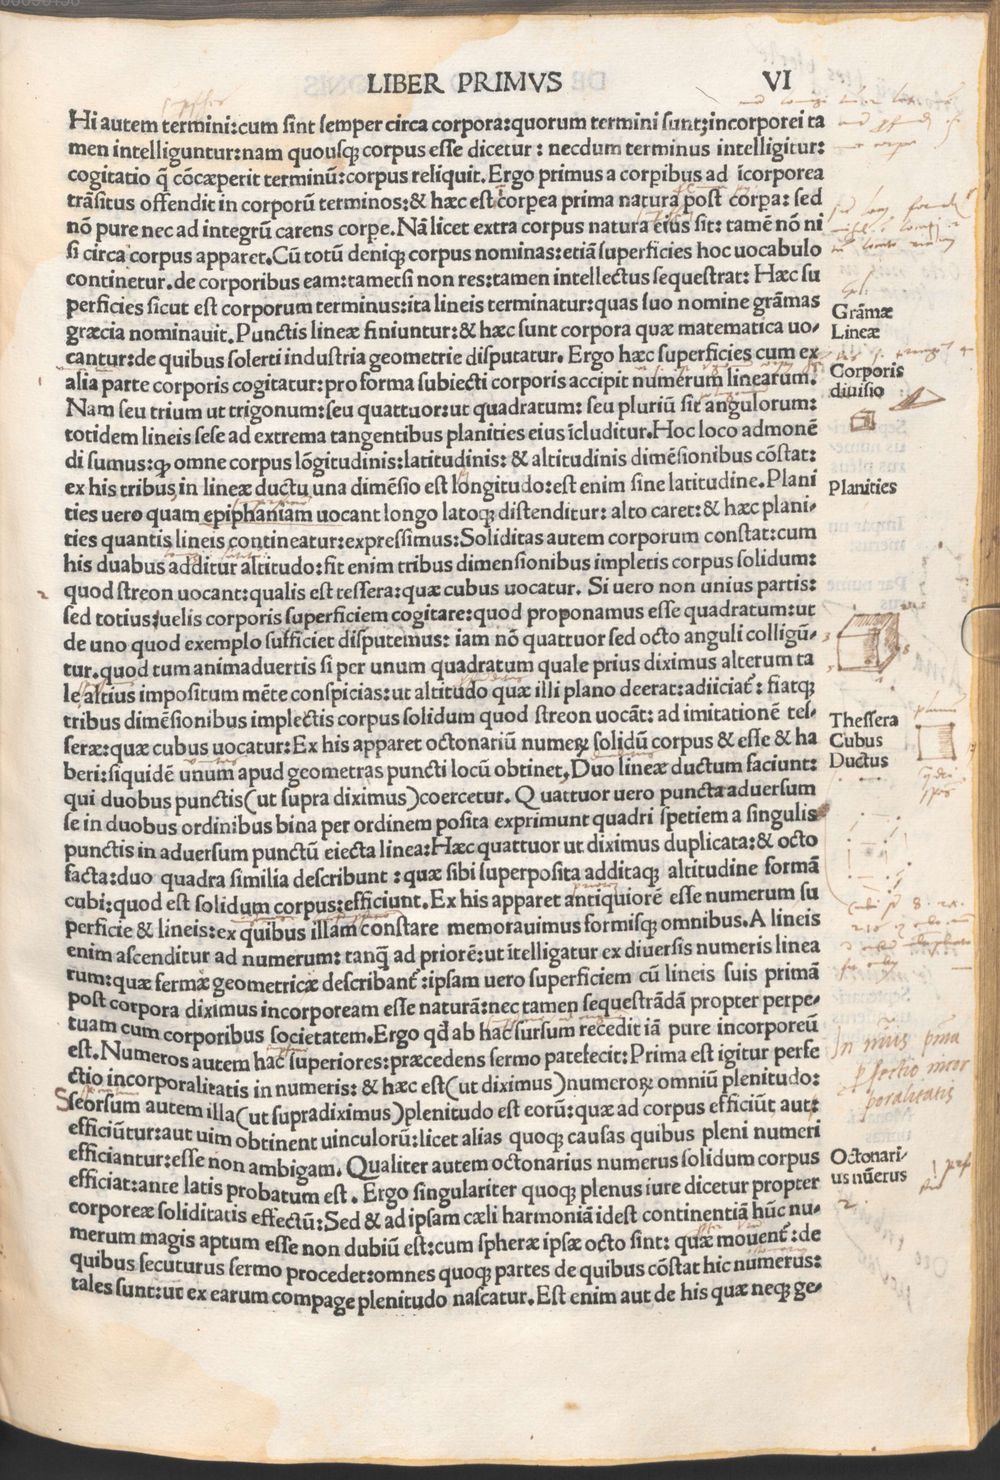 LIBER PRIMVS VI
Hi autem termini:cum sint semper circa corpora:quorum termini sunt;incorporei ta
men intelliguntur:nam quousqꝫ corpus esse dicetur : necdum terminus intelligitur:
cogitatio q̃ cõcæperit terminũ:corpus reliquit. Ergo primus a corpibus ad ĩcorporea
trãsitus offendit in corporũ terminos:& hæc est ĩcorpea prima natura post corpa: sed
nõ pure nec ad integrũ carens corpe. Nã licet extra corpus natura eius sit: tamẽ nõ ni
si circa corpus apparet. Cũ totũ deniqꝫ corpus nominas:etiã superficies hoc uocabulo
continetur. de corporibus eam:tametsi non res:tamen intellectus sequestrat: Hæc su
perficies sicut est corporum terminus:ita lineis terminatur:quas suo nomine grãmas
græcia nominauit. Punctis lineæ finiuntur:& hæc sunt corpora quæ matematica uo‐
cantur:de quibus solerti industria geometrie disputatur. Ergo hæc superficies cum ex
alia parte corporis cogitatur:pro forma subiecti corporis accipit numerum linearum.
Nam seu trium ut trigonum:seu quattuor:ut quadratum: seu pluriũ sit angulorum:
totidem lineis sese ad extrema tangentibus planities eius ĩcluditur. Hoc loco admonẽ
di sumus:qꝫ omne corpus lõgitudinis:latitudinis: & altitudinis dimẽsionibus cõstat:
ex his tribus in lineæ ductu una dimẽsio est longitudo:est enim sine latitudine. Plani
ties uero quam epiphaniam uocant longo latoqꝫ distenditur: alto caret:& hæc plani‐
ties quantis lineis contineatur:expressimus:Soliditas autem corporum constat:cum
his duabus additur altitudo:fit enim tribus dimensionibus impletis corpus solidum:
quod streon uocant:qualis est tessera:quæ cubus uocatur. Si uero non unius partis:
sed totius:uelis corporis superficiem cogitare:quod proponamus esse quadratum:ut
de uno quod exemplo sufficiet disputemus: iam nõ quattuor sed octo anguli colligũ‐
tur. quod tum animaduertis si per unum quadratum quale prius diximus alterum ta
le altius impositum mẽte conspicias:ut altitudo quæ illi plano deerat:adiiciat̃: fiatqꝫ
tribus dimẽsionibus implectis corpus solidum quod streon uocãt: ad imitationẽ tes‐
seræ:quæ cubus uocatur:Ex his apparet octonariũ numeꝝ solidũ corpus & esse & ha
beri:siquidẽ unum apud geometras puncti locũ obtinet. Duo lineæ ductum faciunt:
qui duobus punctis(ut supra diximus)coercetur. Quattuor uero puncta aduersum
se in duobus ordinibus bina per ordinem posita exprimunt quadri spetiem a singulis
punctis in aduersum punctũ eiecta linea:Hæc quattuor ut diximus duplicata:& octo
facta:duo quadra similia describunt : quæ sibi superposita additaqꝫ altitudine formã
cubi:quod est solidum corpus:efficiunt. Ex his apparet antiquiorẽ esse numerum su
perficie & lineis:ex quibus illam constare memorauimus formisqꝫ omnibus. A lineis
enim ascenditur ad numerum: tanq̃ ad priorẽ:ut ĩtelligatur ex diuersis numeris linea
rum:quæ fermæ geometricæ describant̃:ipsam uero superficiem cũ lineis suis primã
post corpora diximus incorpoream esse naturã:nec tamen sequestrãdã propter perpe‐
tuam cum corporibus societatem. Ergo qđ ab hac sursum recedit iã pure incorporeũ
est. Numeros autem hac superiores:præcedens sermo patefecit: Prima est igitur perfe
ctio incorporalitatis in numeris: & hæc est(ut diximus)numeroꝝ omniũ plenitudo:
Seorsum autem illa(ut supradiximus)plenitudo est eorũ:quæ ad corpus efficiũt aut:
efficiũtur:aut uim obtinent uinculorũ:licet alias quoqꝫ causas quibus pleni numeri
efficiantur:esse non ambigam. Qualiter autem octonarius numerus solidum corpus
efficiat:ante latis probatum est. Ergo singulariter quoqꝫ plenus iure dicetur propter
corporeæ soliditatis effectũ:Sed & ad ipsam cæli harmoniã idest continentiã hũc nu‐
merum magis aptum esse non dubiũ est:cum spheræ ipsæ octo sint: quæ mouent̃:de
quibus secuturus sermo procedet:omnes quoqꝫ partes de quibus cõstat hic numerus:
tales sunt:ut ex earum compage plenitudo nascatur. Est enim aut de his quæ neqꝫ ge‐
Grãmæ
Lineæ
Corporis
diuisio
Planities
Thessera
Cubus
Ductus
In nũis pma
pfectio incor
poralitatis
Octonari‐
us nũerus